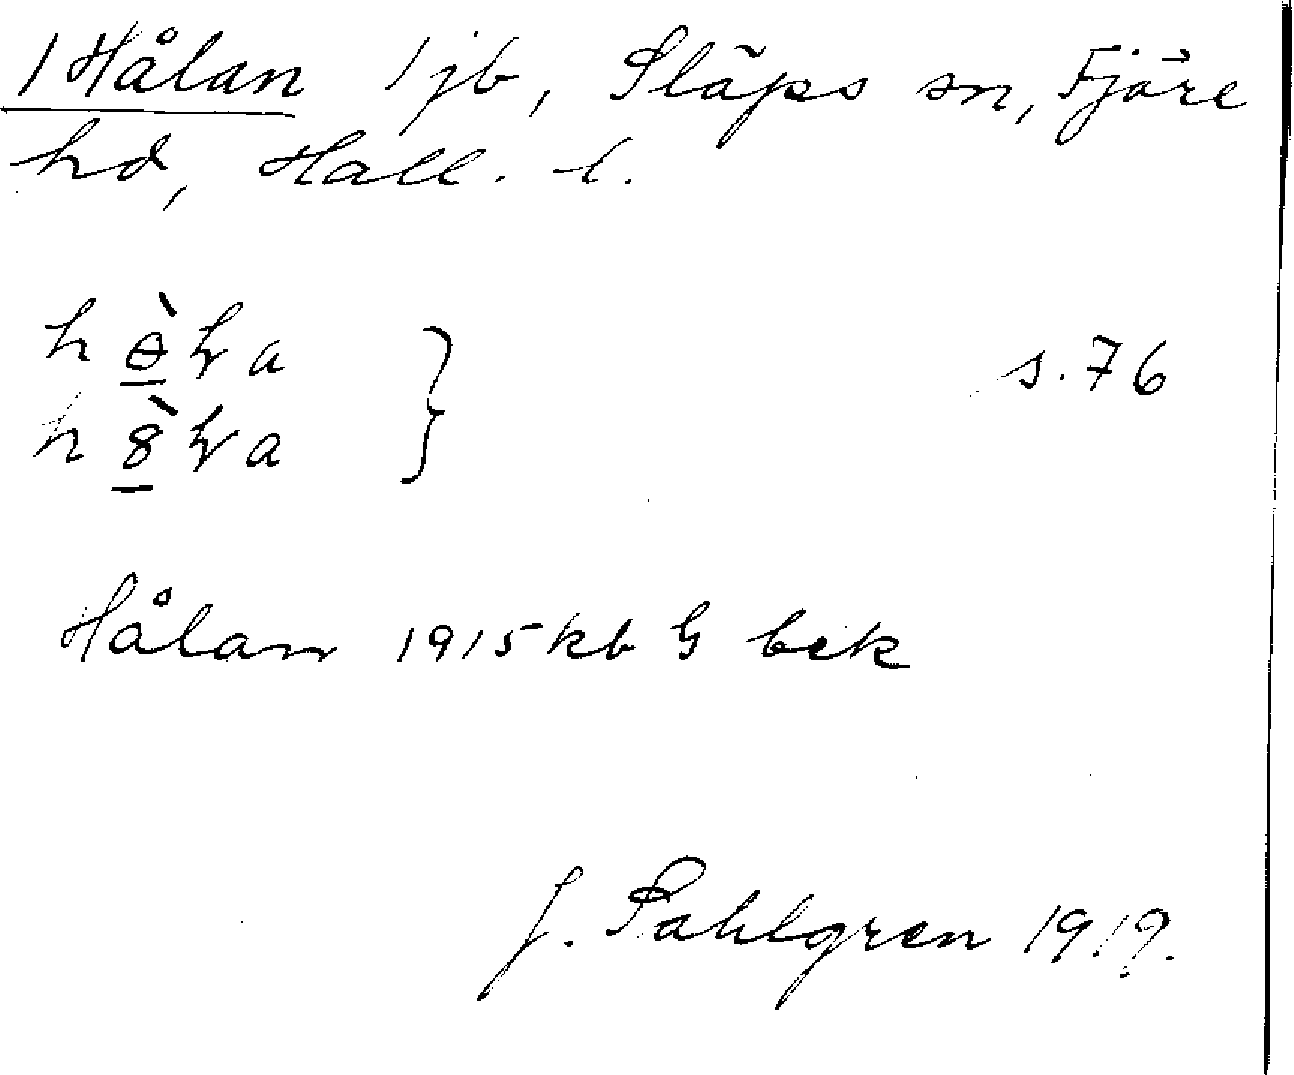 1 Hålan 1 jb, Släps sn, Fjäre
hd, Hall. l.
hɵ̲̀ɽa } s.76
h8̲̀ɽa
Hålan 1915 kb G bek
J. Sahlgren 1919.